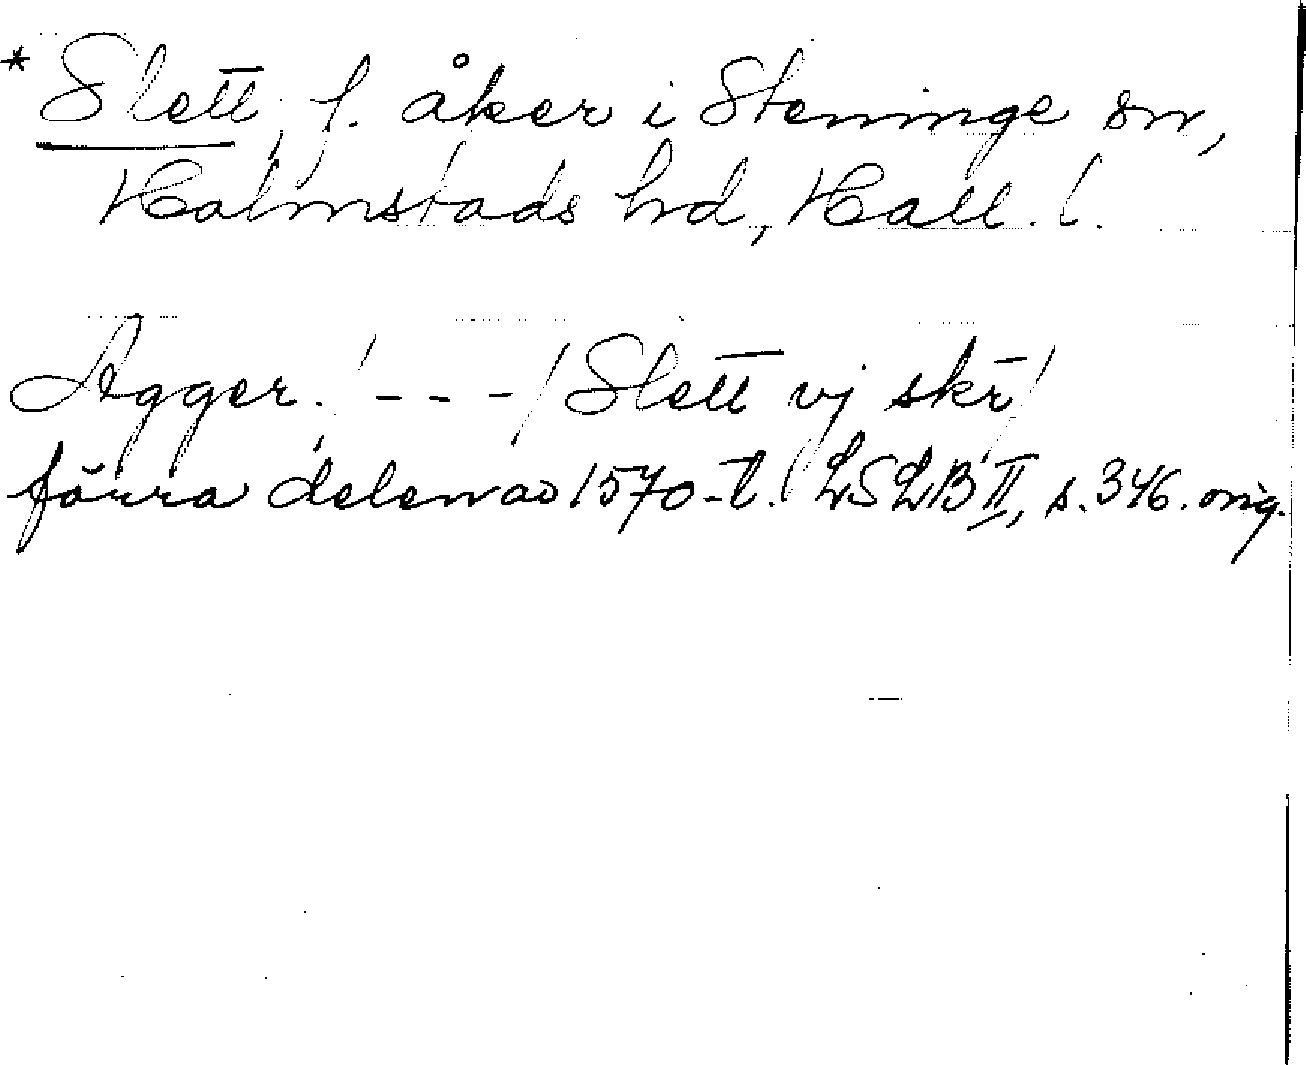 * Slett, f. åker i Steninge sn,
Halmstads hd, Hall. l.
Agger. / - - - / Slett vj skr /
förra delen av 1570-t. LSLB II, s. 346. orig.